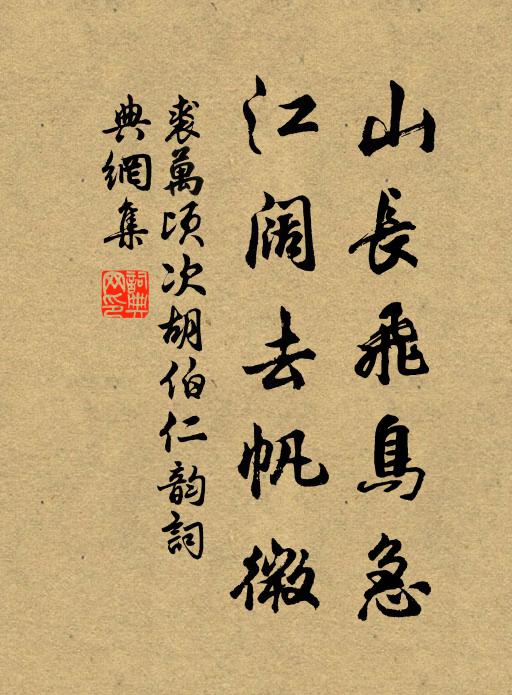 山長飛鳥急
江闊去帆微
裘萬頃次胡伯仁韵詞
典網集
詞典网印